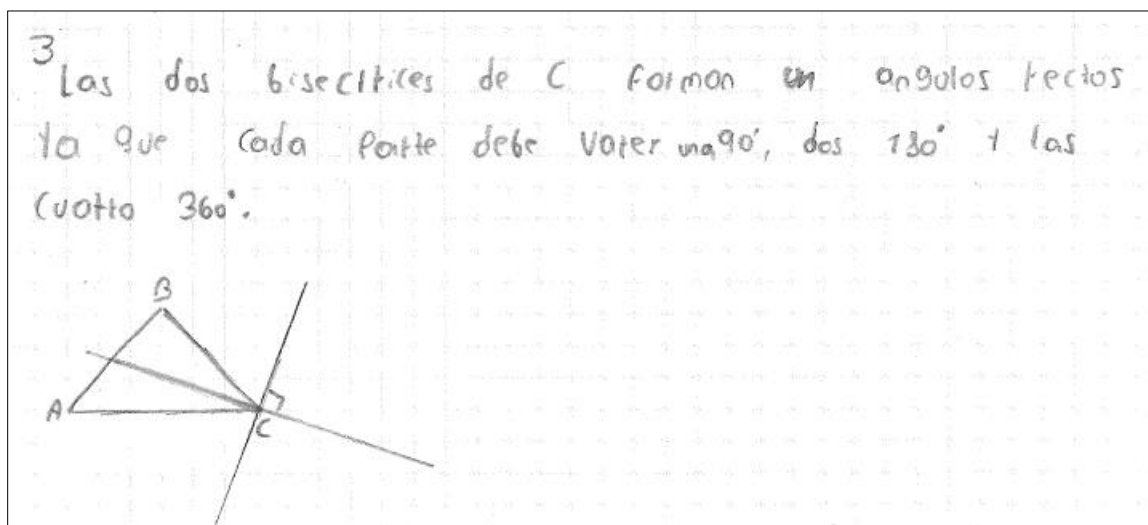 3
Las dos bisecitices de C forman un angulos rectos
ya que cada parte debe valer una 90°, dos 180° y las
cuatro 360°.
B
A
C